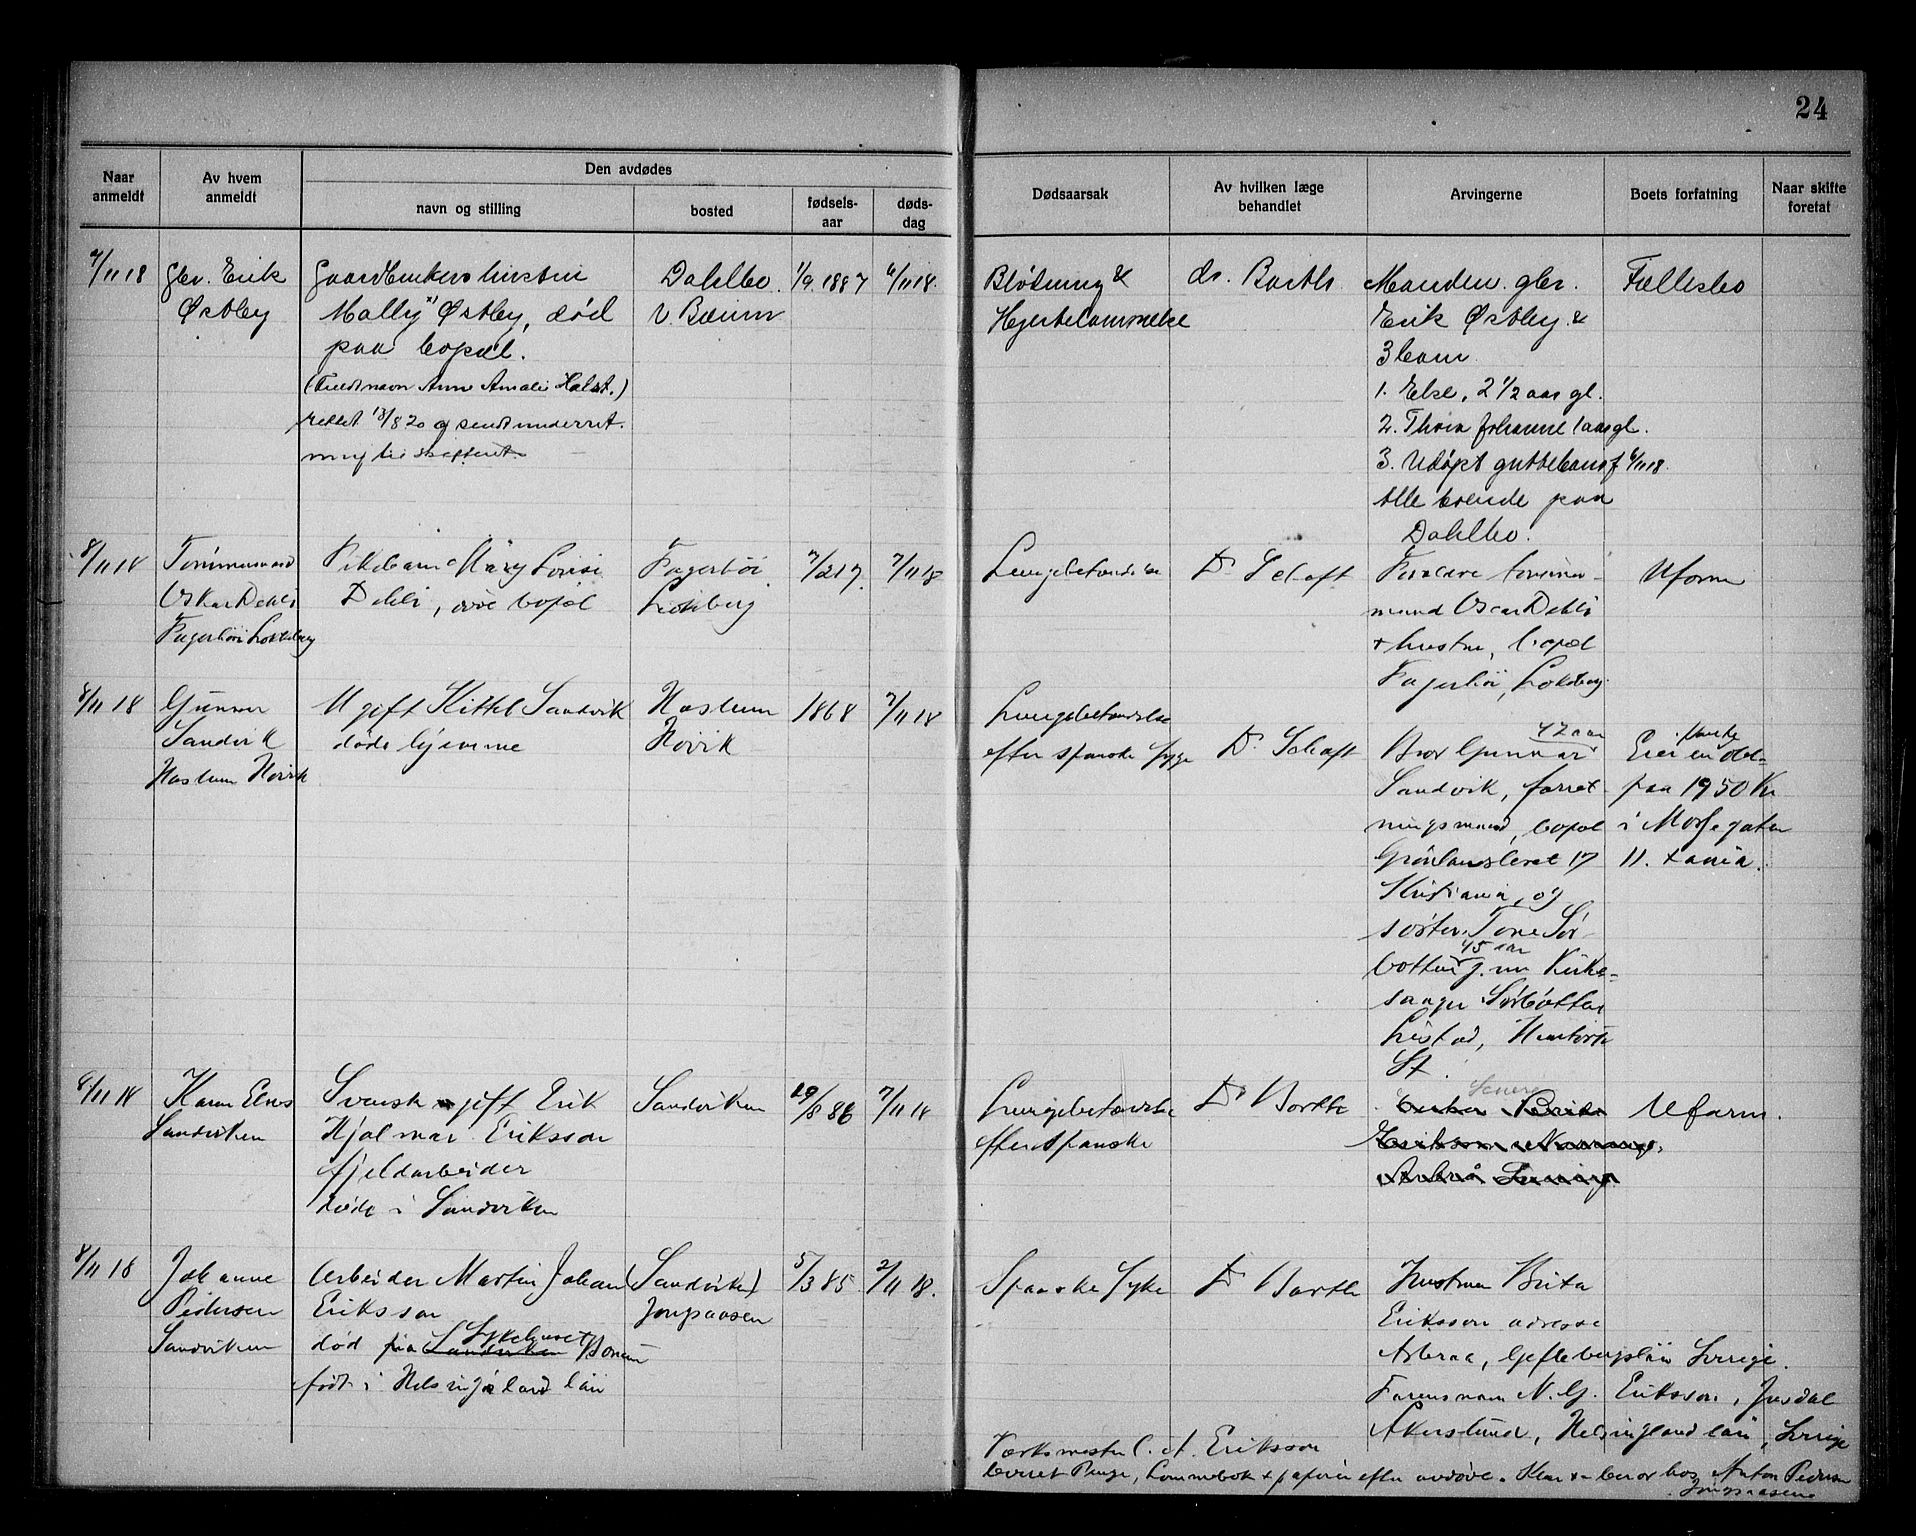 24
Naar anmeldt
Av hvem anmeldt
Den avdødes
navn og stilling
bosted
fødsels-aar
døds-dag
Dødsaarsak
Av hvilken læge behandlet
Arvingerne
Boets forfatning
Naar skifte foretat
7/11 18
gbr. Erik
Østbey
Gaardbrukers hustru
"Mally" Østbey, død
paa bopæl.
(Fuldt navn Anne Amalie Halst.)
rettet 13/8 20 og sendt underret.
ning til skifteret.
Dahlbo
v Bærum
1/9. 1887
6/11 18.
Blødning &
Hjertelammelse
dr. Barth
Manden gbr.
Erik Østbey &
3 barn
1. Else, 2 1/2 aar gl.
2. Thora Johanne 1 aar gl.
3. Udøpt guttebarn f 6/11 18.
Alle boende paa
Dahlbo.
Fællesbo
8/11 18
Tømmermand
Oskar Dehli
Fagerhøi Løkeberg
Pikebarn Mary Lovise
Dehli, død bopæl
Fagerhøi
Løkeberg
7/11 18
Lungebetændelse
Dr Schaft
Forældre tømmer-
mand Oscar Dehli
+ hustru, bopæl
Fagerhøi, Løkeberg.
Uform
8/11 18
Gunnar
Sandvik
Haslum Høvik
Ugift Kittel Sandvik
døde hjemme
Haslum
Høvik
1868
7/11 18
Lungebetændelse
efter spanske syge
Dr. Schaft
42 aar
Bror Gunnar
Sandvik, forret
ningsmand, bopæl
Grønlandsleret 17
Kristiania, og
søster Tone Sør
45 aar
botten g. m Kirke-
sanger Sørbotten
St.
Eier en obl-
paa 1950 Kr
i gaten
11. Xania.
8/11 18
Karen Elnes
Sandviken
Svensk gift Erik
Hjalmar Eriksson
fjeldarbeider
døde i Sandviken
Sandviken
29/8 86
7/11 18
Lungebetændelse
efter spanske
Dr Barth
Senere
Uform.
8/11 18
Johanne
Pedersen
Sandviken
Arbeider Martin Johan
Eriksson
død paa Sandviken Sykehuset Bærum
født i Helsingeland län
(Sandviken)
Jongsaasen
5/3 85
2/11 18.
Spanske Syke
Dr Barth
Hustruen Brita
Eriksson adresse
Arbraa, Gefleborgslän Sverige.
Farens navn N. G. Eriksson, Jusdal
Akerslund, Helsingland län, Sverige
Værksmester C. A. Eriksson
leveret Penge, Lommebok + papirer efter avdøde. Klær beror hos Anton Pedersen
Jongsaasen